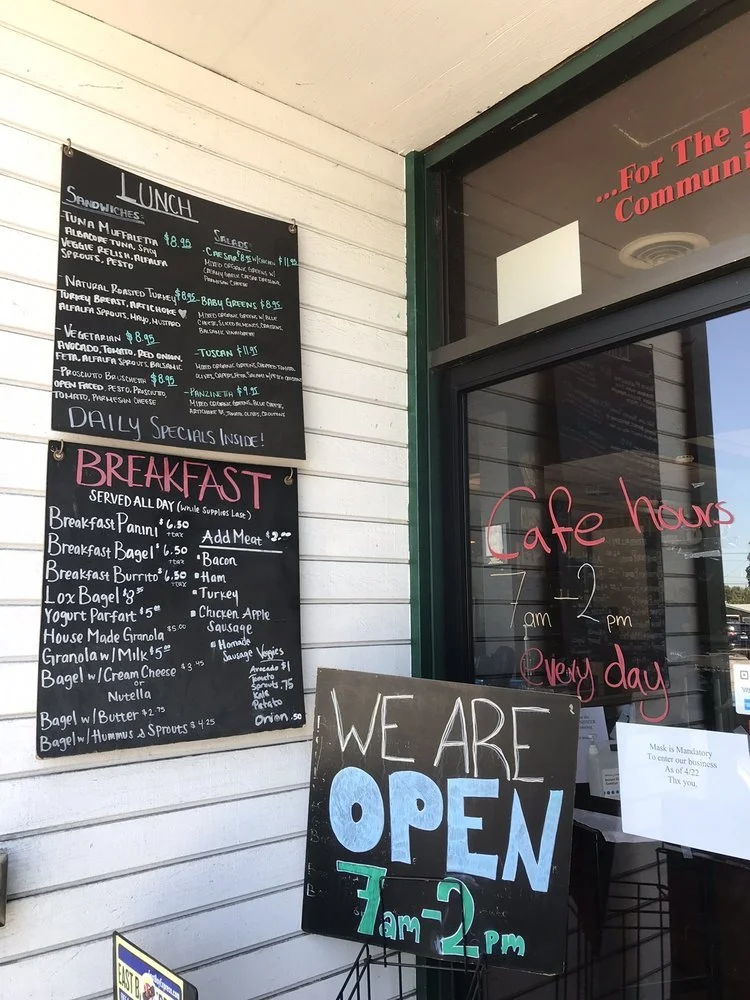 LUNCH
SANDWICHES:
-TUNA MUFFALETTA $8.95
ALBACORE TUNA, SPICY
VEGGIE RELISH, ALFALFA
SPROUTS, PESTO
-NATURAL ROASTED TURKEY $8.95
TURKEY BREAST, ARTICHOKE
ALFALFA SPROUTS, MAYO, MUSTARD
-VEGETARIAN $8.95
AVOCADO, TOMATO, RED ONION,
FETA, ALFALFA SPROUTS, BALSAMIC
-PROSCIUTTO BRUSCHETTA $8.95
OPEN FACED, PESTO, PROSCIUTTO
TOMATO, PARMESAN CHEESE
SALADS:
-CAESAR $8.95 W/CHICKEN $11.95
MIXED ORGANIC GREENS W/
CREAMY GARLIC CAESAR DRESSING,
PARMESAN CHEESE
-BABY GREENS $8.95
MIXED ORGANIC GREENS W/BLUE
CHEESE, SLICED ALMONDS, CROUTONS,
BALSAMIC VINAIGRETTE
-TUSCAN $11.95
MIXED ORGANIC GREENS, CHOPPED TOMATO,
OLIVES, CAPERS, FETA, SALAMI
-PANZINETH $9.95
MIXED ORGANIC GREENS, BLUE CHEESE,
ARTICHOKE, TOMATO, OLIVES, CROUTONS
DAILY SPECIALS INSIDE!
BREAKFAST
SERVED ALL DAY (While Supplies Last)
Breakfast Panini $6.50
+TAX
Breakfast Bagel $6.50
+TAX
Breakfast Burrito $6.50
+TAX
Lox Bagel
Yogurt Parfart $5.00
House Made Granola $5.00
Granola w/Milk $5.00
Bagel w/Cream Cheese $3.45
or
Nutella
Bagel w/Butter $2.75
Bagel w/Hummus & Sprouts $4.25
Add Meat $2.00
Bacon
Ham
Turkey
Chicken Apple
Sausage
Homade
Sausage
Veggies
Avocado $1
Tomato
Sprouts .75
Kale
Potato
Onion .50
...For The
Communi
Cafe hours
7am-2pm
every day
WE ARE
OPEN
7am-2pm
Mask is Mandatory
To enter our business
As of 4/22
Thx you.
EAST B